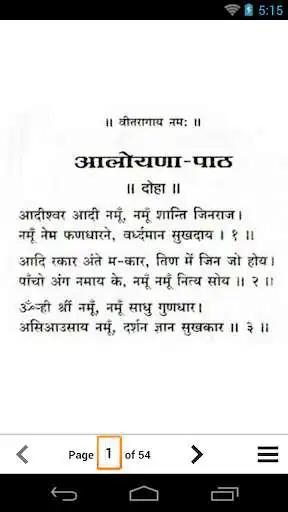 5:15
॥ वीतरागाय नमः ॥
आलोयणा-पाठ
॥ दोहा ॥
आदीश्वर आदी नमूँ, नमूँ शान्ति जिनराज।
नमूँ नेम फणधारने, वर्ध्दमान सुखदाय । १ ॥
आदि रकार अंते म-कार, तिण में जिन जो होय।
पाँचो अंग नमाय के, नमूँ नमूँ नित्य सोय ॥ २ ॥
ॐ ह्री श्रीं नमूँ, नमूँ साधु गुणधार।
असिआउसाय नमूँ, दर्शन ज्ञान सुखकार ॥ ३ ॥
Page 1 of 54